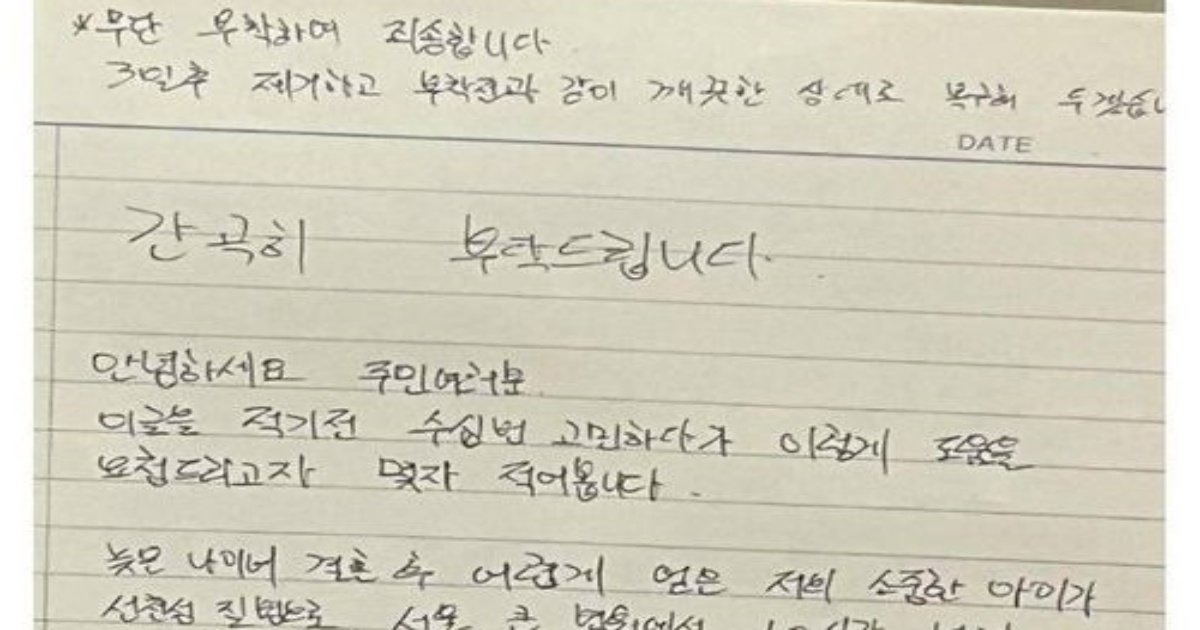 *무단 부착하여 죄송합니다
3일후 제거하고 부착전과 같이 깨끗한 상태로 복구해 두겠습니
DATE
간곡히 부탁드립니다.
안녕하세요 주민여러분
이글을 적기전 수십번 고민하다가 이렇게 도움을
요청드리고자 몇자 적어봅니다.
늦은 나이에 결혼 후 어렵게 얻은 저의 소중한 아이가
선천성 질병으로 서울 큰 병원에서